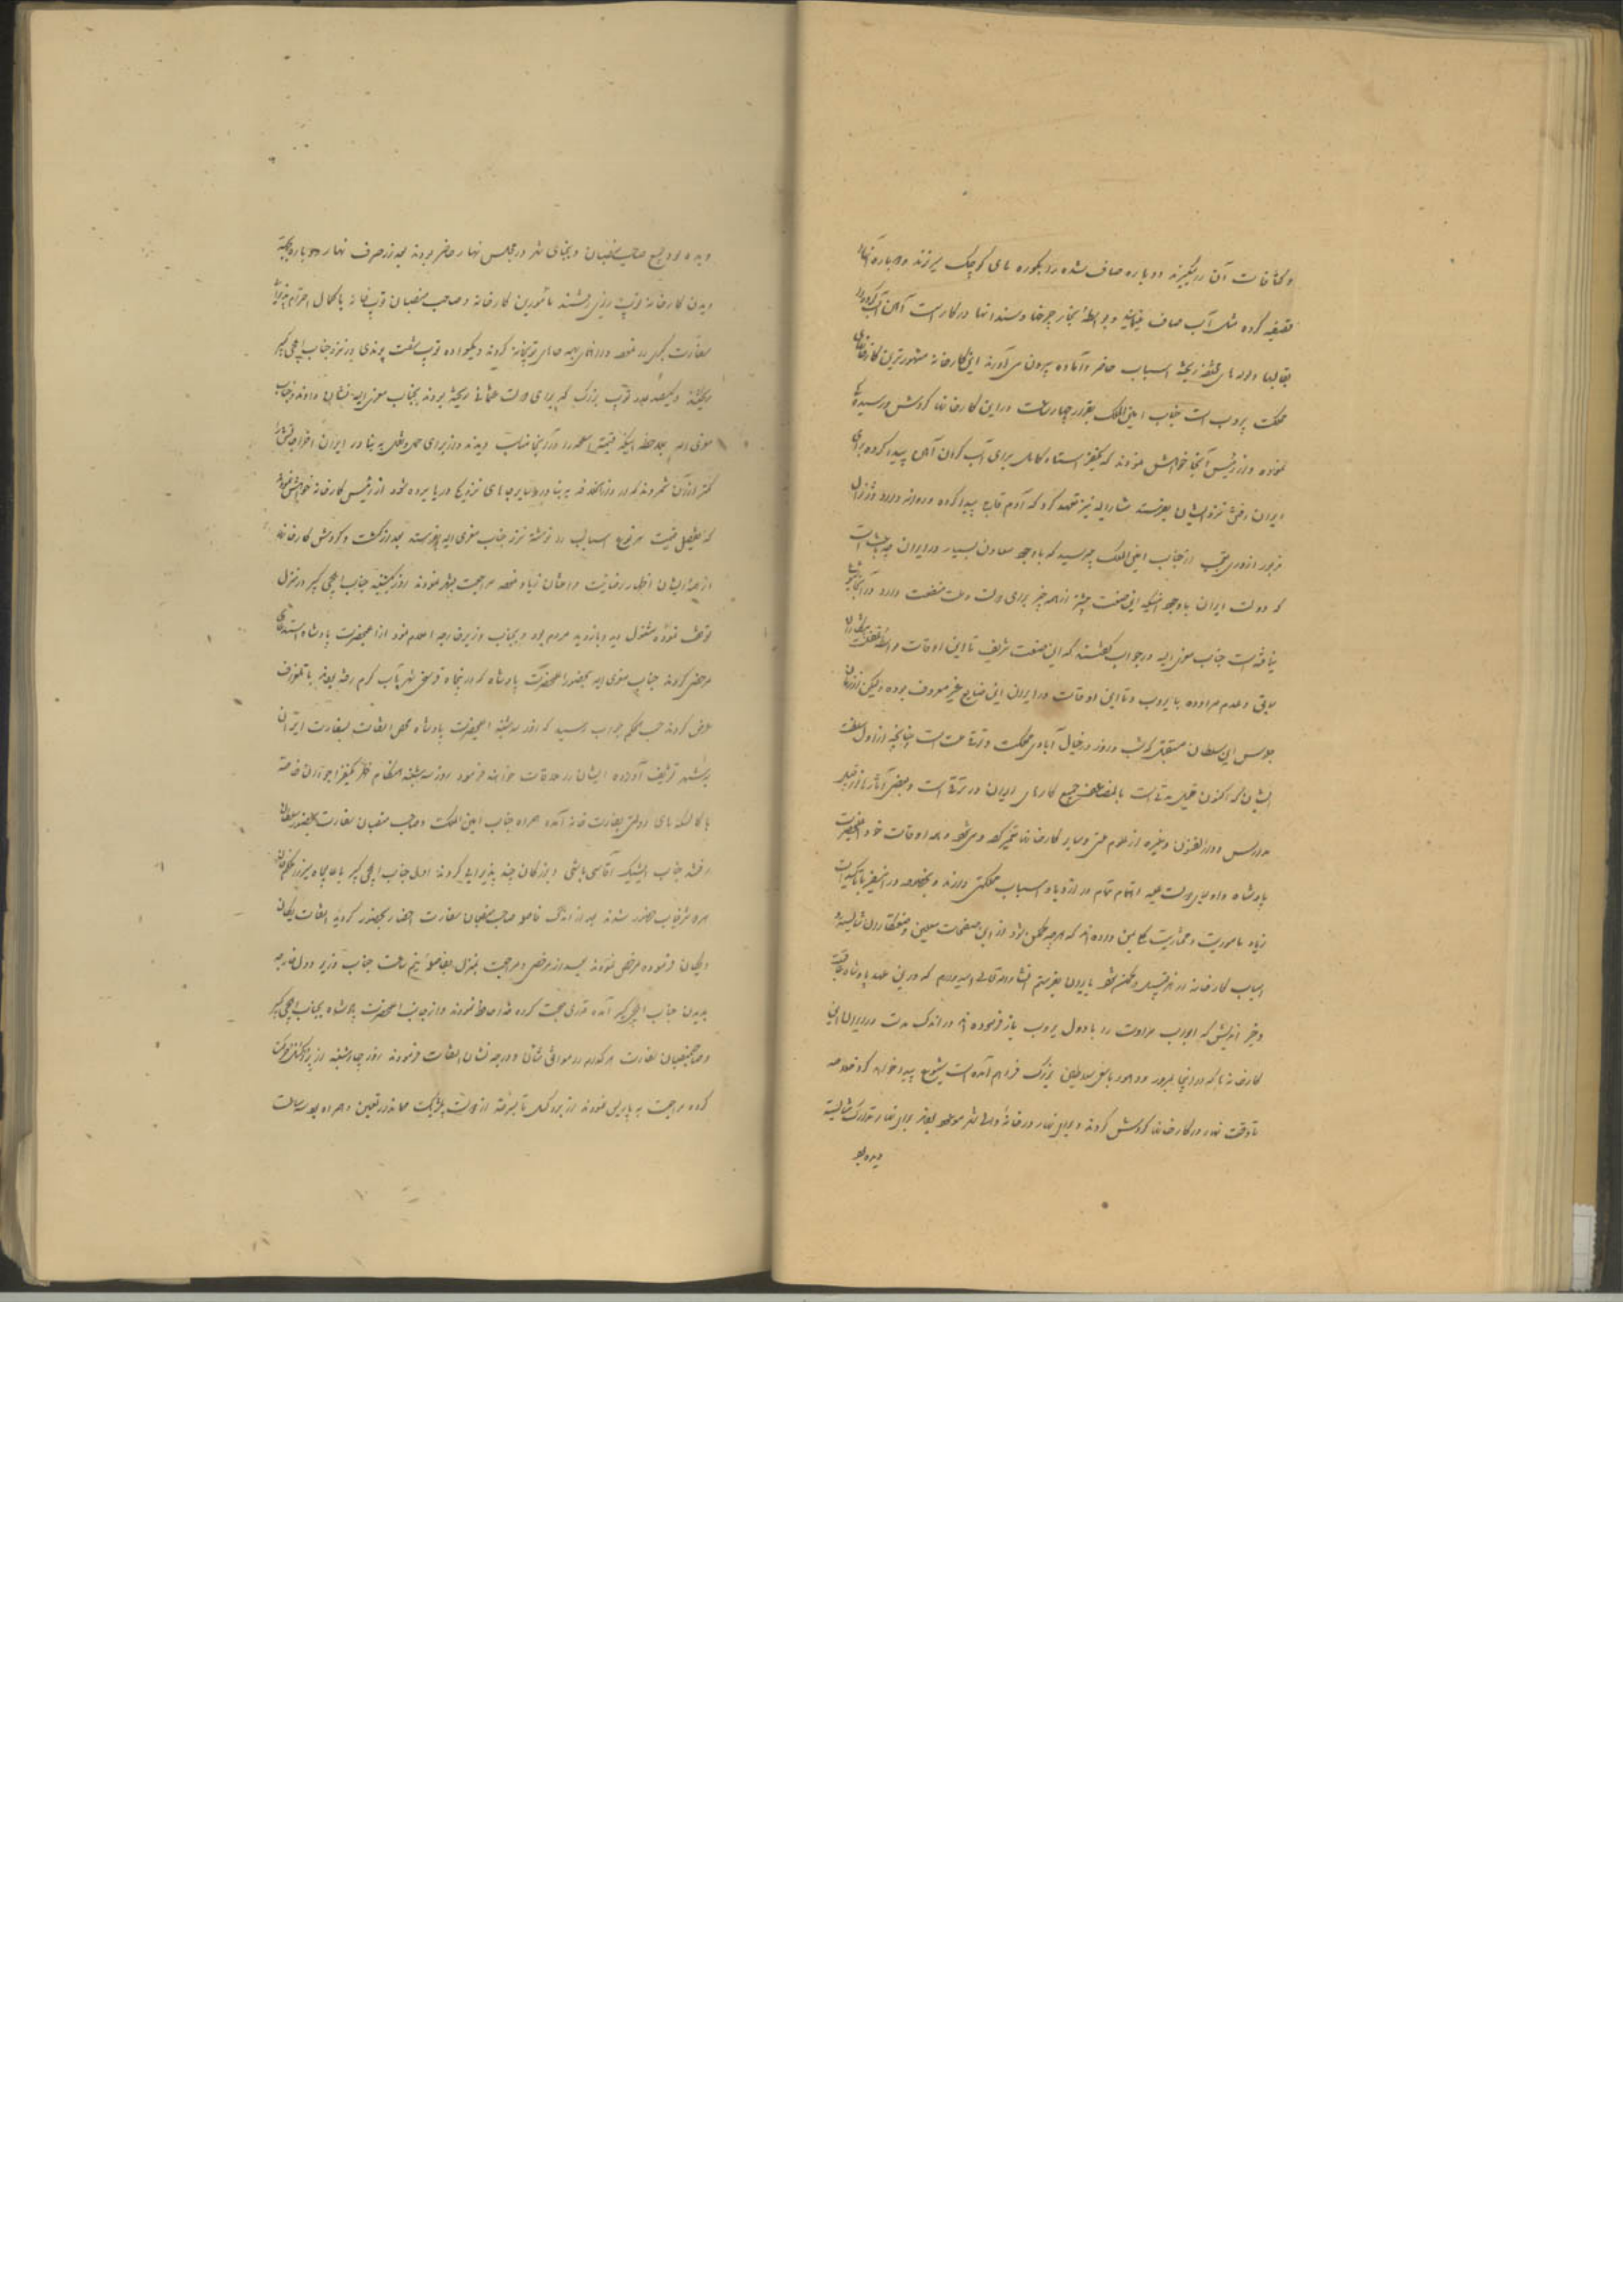 و کثافات آن را میگیرند دوباره صاف شده را بکوره های کوچک میریزند و دوباره آنها را
تصفیه کرده مثل آب صاف مینمایند و بواسطهٔ بخار چرخها و سندانها در کار است آهن آب کرده را
بقالبها و لوله های مختلفه ریخته اسباب حاضر و آماده بیرون می آورند این کارخانه مشهورترین کارخانهای
مملکت یروپ است جناب امین الملک بقدر چهار ساعت در این کارخانها گردش و رسیدگی
نموده و از رئیس آنجا خواهش نمودند که یکنفر استاد کامل برای آب کردن آهن پیدا کرده برای
ایران رفتن نزد ایشان بفرستد مشارالیه نیز تعهد کرد که آدم قابل پیدا کرده روانه دارد و ژنرال
مزبور از جناب امین الملک پرسید که با وجود معادن بسیار در ایران چه باعث است
که دولت ایران با وجود اینکه این صنعت بیشتر از همه چیز برای دولت و ملت منفعت دارد در آنجا شیوع
نیافته است جناب معزی الیه در جواب گفتند که این صنعت شریف تا این اوقات واسطه غفلت
سابق و عدم مراوده با یروپ و تا این اوقات در ایران این صنایع غیر معروف بوده ولیکن از زمان
جلوس این سلطان مستقل که شب و روز در خیال آبادی مملکت و ترقی ملت است چنانچه از اول سلطنت
ایشان که اکنون قلیل مدتی است بالمضاعف جمیع کارهای ایران در ترقی است و بعضی آثار تازه از قبیل
مدارس و دارالفنون و غیره از علوم حتی و سایر کارخانها تعمیر کرده و میشود و همه اوقات خود اعلیحضرت
پادشاه و اولیای دولت علیه اهتمام تمام در ازدیاد اسباب مملکتی دارند و بخصوصه در این سفر با تاکیدات
زیاد مأموریت و مختاریت بمن داده اند که هر چه ممکن شود از این صفحات معلمین و صنعتکاران شایسته و
اسباب کارخانه در هر قسم ممکن شود بایران بفرستم انشاءالله تعالی امیدوارم که در این عهد پادشاه عاقبت
و خیر اندیش که ابواب مراودت را با دول یروپ باز فرموده اند در اندک مدت در ایران این
کارخانها که در اینجا بمرور دهور با سعی سلاطین بزرگ فراهم آمده است شیوع پیدا خواهد کرد خلاصه
تا وقت نهار در کارخانها گردش کردند و برای نهار در خانهٔ والی شهر موعود بودند برای نهار تدارک شایسته
دیده بود
دیده بود و جمیع صاحب منصبان و نجبای شهر در مجلس نهار حاضر بودند بعد از صرف نهار دوباره بجهة
دیدن کارخانه توپ ریزی رفتند مأمورین کارخانه و صاحب منصبان توپخانه با کمال احترام پذیرائی
سفارت کبری را نموده در همه جای توپخانه گردیدند و یکعراده توپ هفت پوندی در نزد جناب ایلچی کبیر
ریختند و یکصد عدد توپ بزرگ که برای دولت عثمانی ریخته بودند بجناب معزی الیه نشان دادند جناب
معزی الیه بملاحظه اینکه قیمت اسلحه را در آنجا مناسب دیدند و از برای حمل و نقل به بنادر ایران اخراجاتش را
کمتر از آن شمردند که در دارالخلافه به بنادر و سایر جاهای نزدیک دریا برده شود از رئیس کارخانه خواهش نمودند
که تفصیل قیمت هر نوع اسباب را نوشته نزد جناب معزی الیه بفرستد بعد از گشت و گردش کارخانه
از همه ایشان اظهار رضایت و امتنان زیاد نموده مراجعت بشهر نمودند روز یکشنبه جناب ایلچی کبیر در منزل
توقف نموده مشغول دید و بازدید مردم بود و بجناب وزیر خارجه اعلام نمود از اعلیحضرت پادشاه استدعای
مرخصی کردند جناب معزی الیه بحضور اعلیحضرت پادشاه که در پنجاه فرسخی شهر بآب گرم رفته بودند با تلغراف
عرض کردند حسب الحکم جواب رسید که روز سه شنبه اعلیحضرت پادشاه محض التفات بسفارت ایران
بشهر تشریف آورده ایشان را ملاقات خواهند فرمود روز سه شنبه هنگام ظهر یکنفر اجودان خاصه
با کالسکه های دولتی بسفارت خانه آمده همراه جناب امین الملک و صاحب منصبان سفارت بحضور سلطان
رفتند جناب ایشیک آقاسی باشی و بزرگان چند پذیرایی کردند اول جناب ایلچی کبیر با عالیجاه میرزا ملکم خان
همه شرفیاب حضور شدند بعد از اندک فاصله صاحب منصبان سفارت احضار بحضور گردیده التفات یکان
و یکان فرموده مرخص نمودند بعد از مرخصی و مراجعت بمنزل بفاصلهٔ نیم ساعت جناب وزیر دول خارجه
بدیدن جناب ایلچی کبیر آمده قدری صحبت کرده خداحافظ نمودند و از جانب اعلیحضرت پادشاه بجناب ایلچی کبیر
و صاحبمنصبان سفارت هر کدام را موافق شأن و درجه نشان التفات فرمودند روز چهارشنبه از بروکسل حرکت
کرده مراجعت به پاریس نمودند از بروکسل تا سرحد از دولت بلژیک مهماندار تعیین و همراه بود سه ساعت